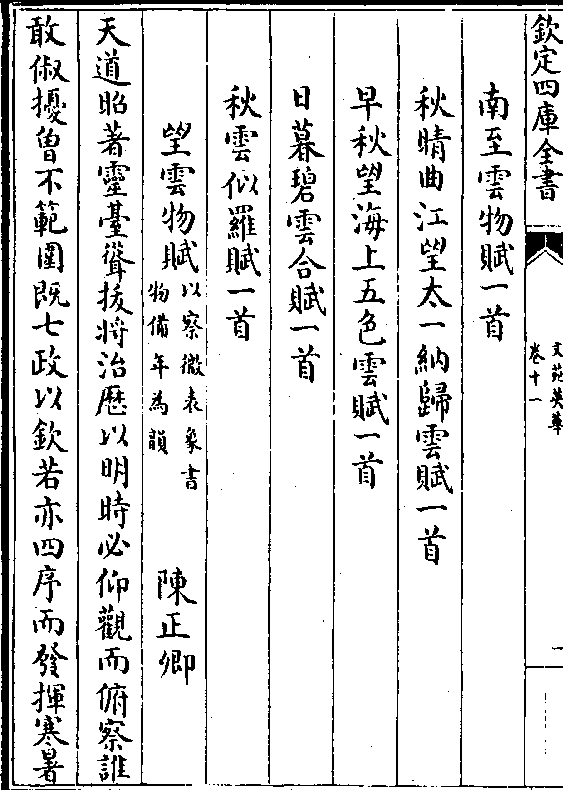 欽定四庫全書
文苑英華
卷十一
一
南至雲物賦一首
秋晴曲江望太一納歸雲賦一首
早秋望海上五色雲賦一首
日暮碧雲合賦一首
秋雲似羅賦一首
望雲物賦
以察微表象書
物備年為韻
陳正卿
天道昭著靈臺聳拔將治歴以明時必仰觀而俯察誰
敢俶擾曾不範圍既七政以欽若亦四序而發揮寒暑